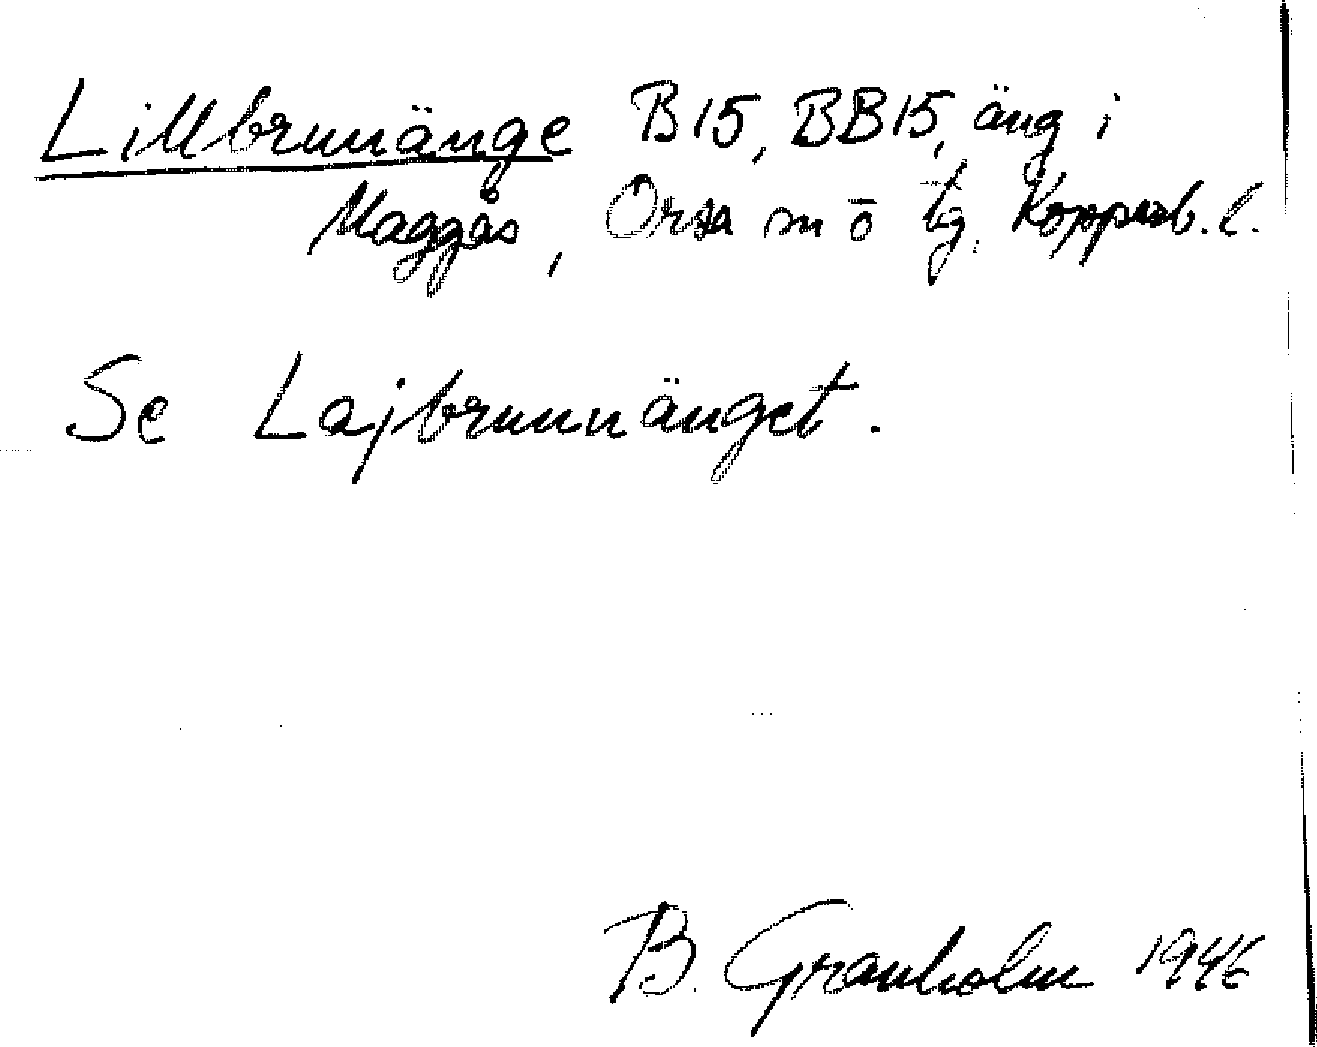 Lillbrunänge B15, BB15, äng i
Maggås, Orsa sn ö tg. Kopparb. l.
Se Lajbrunnänget.
B. Granholm 1946